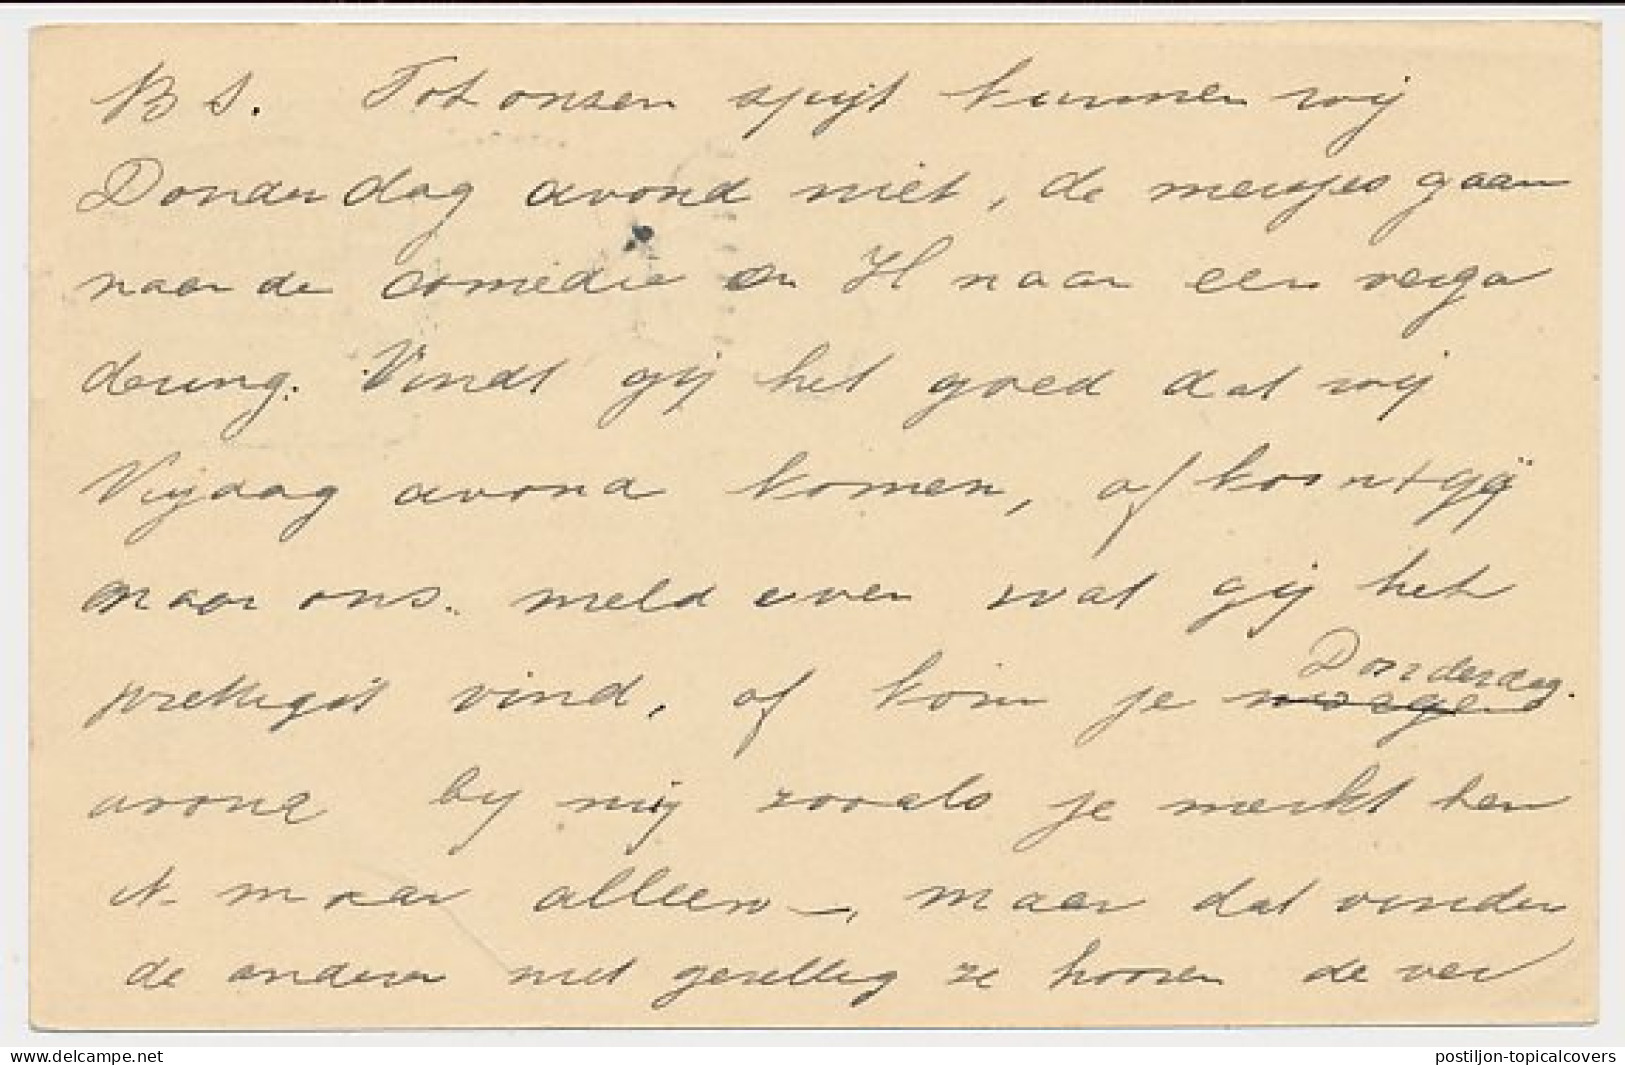 B S. Tot onzen spijt kunnen wij
Donderdag avond niet, de meisjes gaan
naar de comedie en H naar een verga
dering. Vindt gij het goed dat wij
Vrijdag avond komen, of komt gij
naar ons. meld even wat gij het
prettigst vind, of kom je morgen Donderdag.
avond by mij zooals je merkt ben
ik maar alleen, maar dat vinden
de anderen niet gezellig ze hooren de ver
delcampe.net
postiljon-topicalcovers